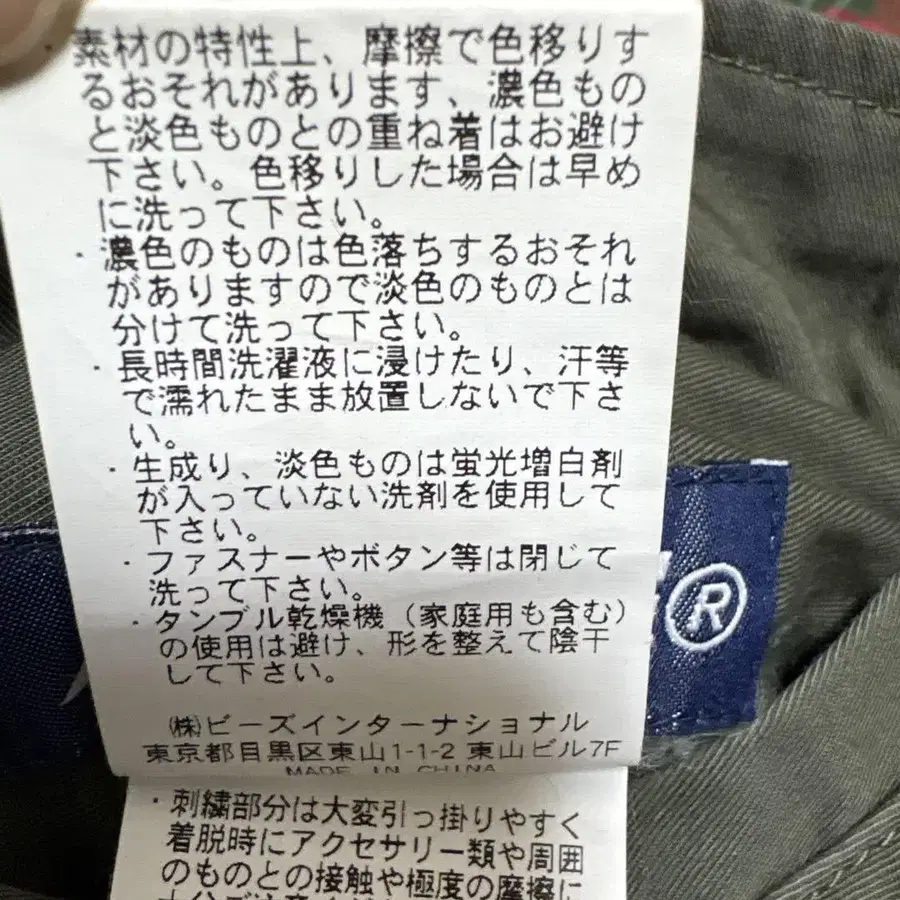 素材の特性上、摩擦で色移りす
るおそれがあります、濃色もの
と淡色ものとの重ね着はお避け
下さい。色移りした場合は早め
に洗って下さい。
・濃色のものは色落ちするおそれ
がありますので淡色のものとは
分けて洗って下さい。
・長時間洗濯液に浸けたり、汗等
で濡れたまま放置しないで下さ
い。
・生成り、淡色ものは蛍光増白剤
が入っていない洗剤を使用して
下さい。
・ファスナーやボタン等は閉じて
洗って下さい。
・タンブル乾燥機（家庭用も含む）
の使用は避け、形を整えて陰干
して下さい。
㈱ビーズインターナショナル
東京都目黒区東山1-1-2 東山ビル7F
MADE IN CHINA
®
・刺繍部分は大変引っ掛りやすく
着脱時にアクセサリー類や周囲
のものとの接触や極度の摩擦に